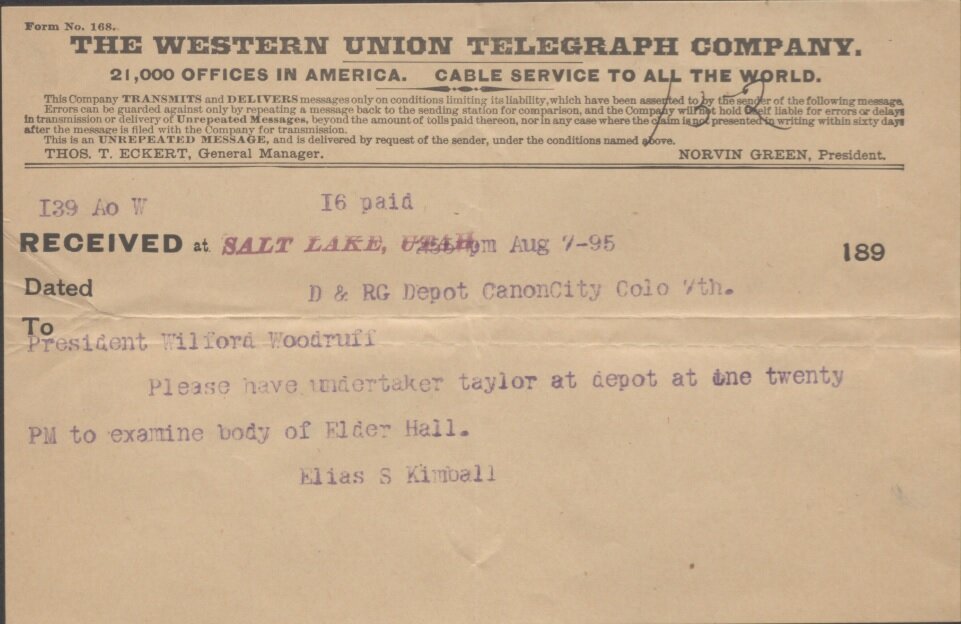 Form No. 168.
THE WESTERN UNION TELEGRAPH COMPANY.
21,000 OFFICES IN AMERICA. CABLE SERVICE TO ALL THE WORLD.
This Company TRANSMITS and DELIVERS messages only on conditions limiting its liability, which have been assented to by the sender of the following message.
Errors can be guarded against only by repeating a message back to the sending station for comparison, and the Company will not hold itself liable for errors or delays
in transmission or delivery of Unrepeated Messages, beyond the amount of tolls paid thereon, nor in any case where the claim is not presented in writing within sixty days
after the message is filed with the Company for transmission.
This is an UNREPEATED MESSAGE, and is delivered by request of the sender, under the conditions named above.
THOS. T. ECKERT, General Manager. NORVIN GREEN, President.
132
I39 Ao W I6 paid
RECEIVED at SALT LAKE, UTAH pm Aug 7-95 189
Dated D & RG Depot CanonCity Colo 7th.
To
President Wilford Woodruff
Please have undertaker taylor at depot at one twenty
PM to examine body of Elder Hall.
Elias S Kimball